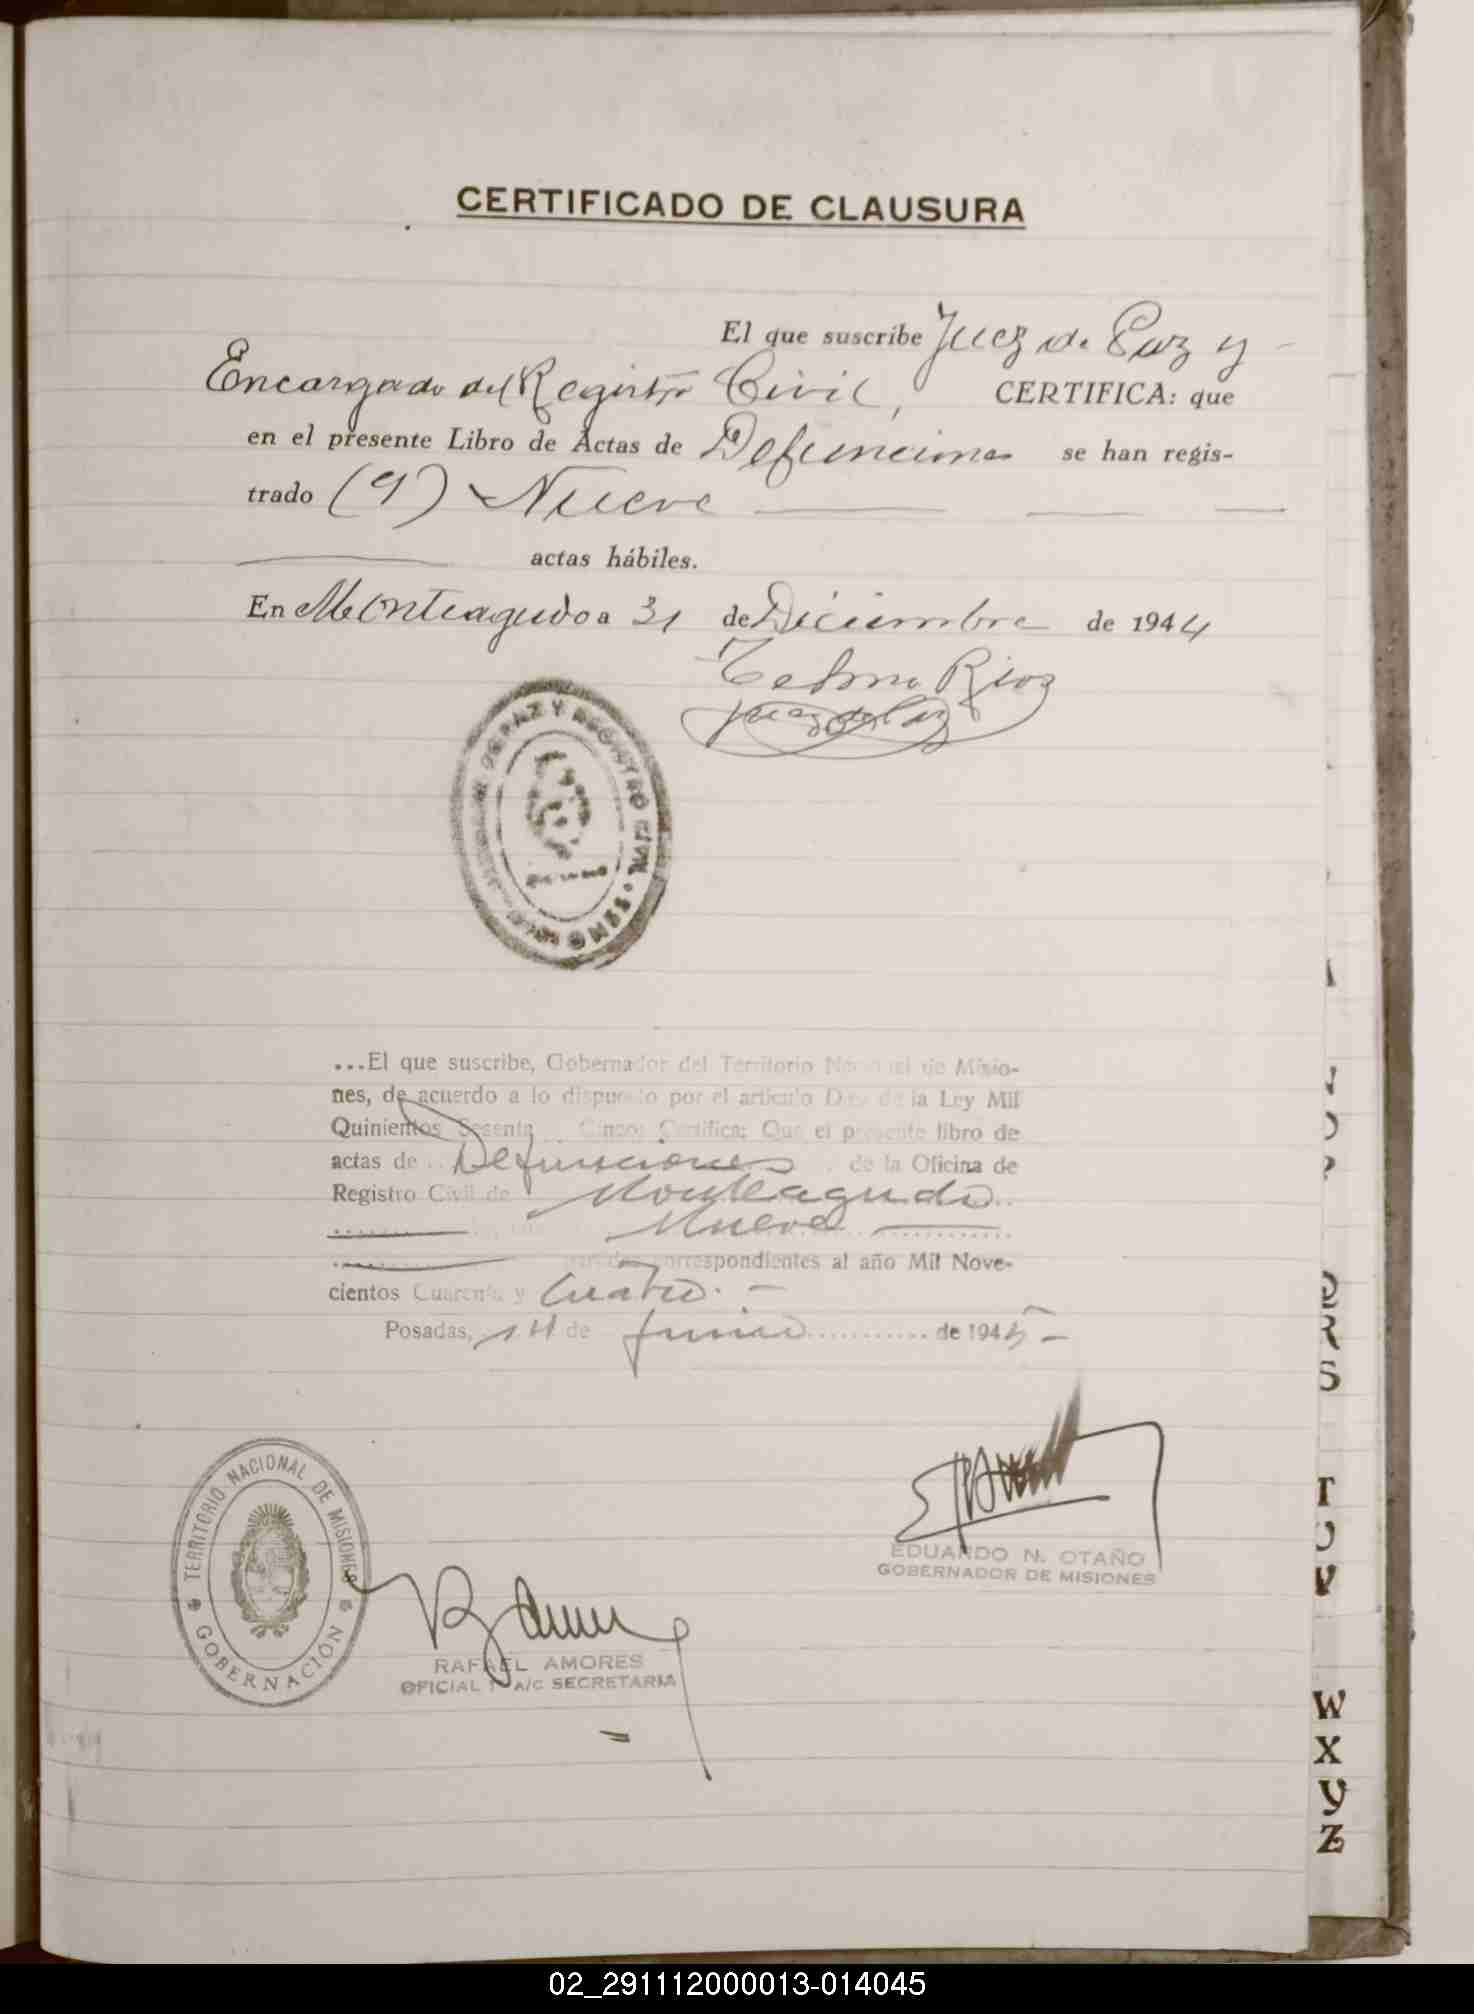 CERTIFICADO DE CLAUSURA
El que suscribe Juez de Paz y -
Encargado del Registro Civil, CERTIFICA: que
en el presente Libro de Actas de Defunciones se han regis-
trado (9) Nueve
actas hábiles.
En Monteagudo a 31 de Diciembre de 1944
Telmo Rios
Juez de Paz
DE PAZ Y REGISTRO CIVIL
MISIONES
...El que suscribe, Gobernador del Territorio Nacional de Misio-
nes, de acuerdo a lo dispuesto por el artículo Diez de la Ley Mil
Quinientos Sesenta y Cinco; Certifica: Que el presente libro de
actas de Defunciones de la Oficina de
Registro Civil de Monteagudo
Nueve
correspondientes al año Mil Nove-
cientos Cuarenta y Cuatro. -
Posadas, 14 de Junio de 1945 -
TERRITORIO NACIONAL DE MISIONES
GOBERNACIÓN
EDUARDO N. OTAÑO
GOBERNADOR DE MISIONES
RAFAEL AMORES
OFICIAL 1º A/C SECRETARIA
Q
R
S
T
U
V
W
X
Y
Z
02_291112000013-014045